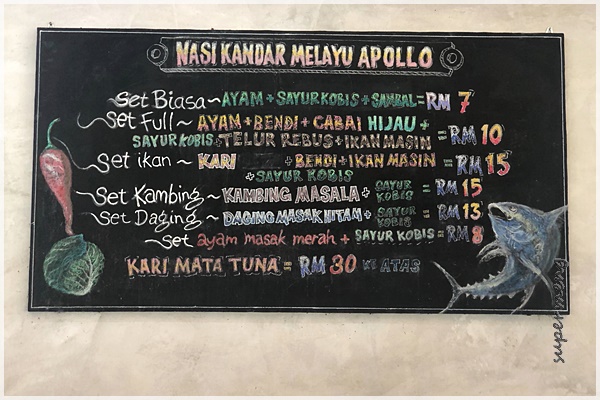 NASI KANDAR MELAYU APOLLO
Set Biasa ~ AYAM + SAYUR KOBIS + SAMBAL = RM 7
Set Full ~ AYAM + BENDI + CABAI HIJAU +
SAYUR KOBIS + TELUR REBUS + IKAN MASIN = RM 10
Set ikan ~ KARI + BENDI + IKAN MASIN = RM 15
+ SAYUR KOBIS
Set Kambing ~ KAMBING MASALA + SAYUR KOBIS = RM 15
Set Daging ~ DAGING MASAK HITAM + SAYUR KOBIS = RM 13
Set ayam masak merah + SAYUR KOBIS = RM 8
KARI MATA TUNA = RM 30 KE ATAS
supermeng